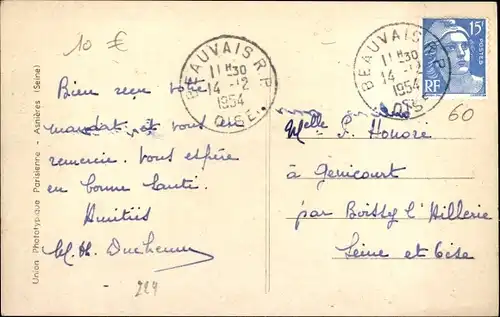 10 €
BEAUVAIS R.P.
11 H 30
14 -2
1954
OISE
BEAUVAIS R.P.
11 H 30
14 -2
1954
OISE
15F
POSTES
RF
60
Bien reçu votre
mandat et vous en
remercie. Vous espère
en bonne santé.
Amitiés
M. H. Duchemin
229
Melle P. Honore
à Génicourt
par Boissy l'Aillerie
Seine et Oise
Union Phototypique Parisienne - Asnières (Seine)